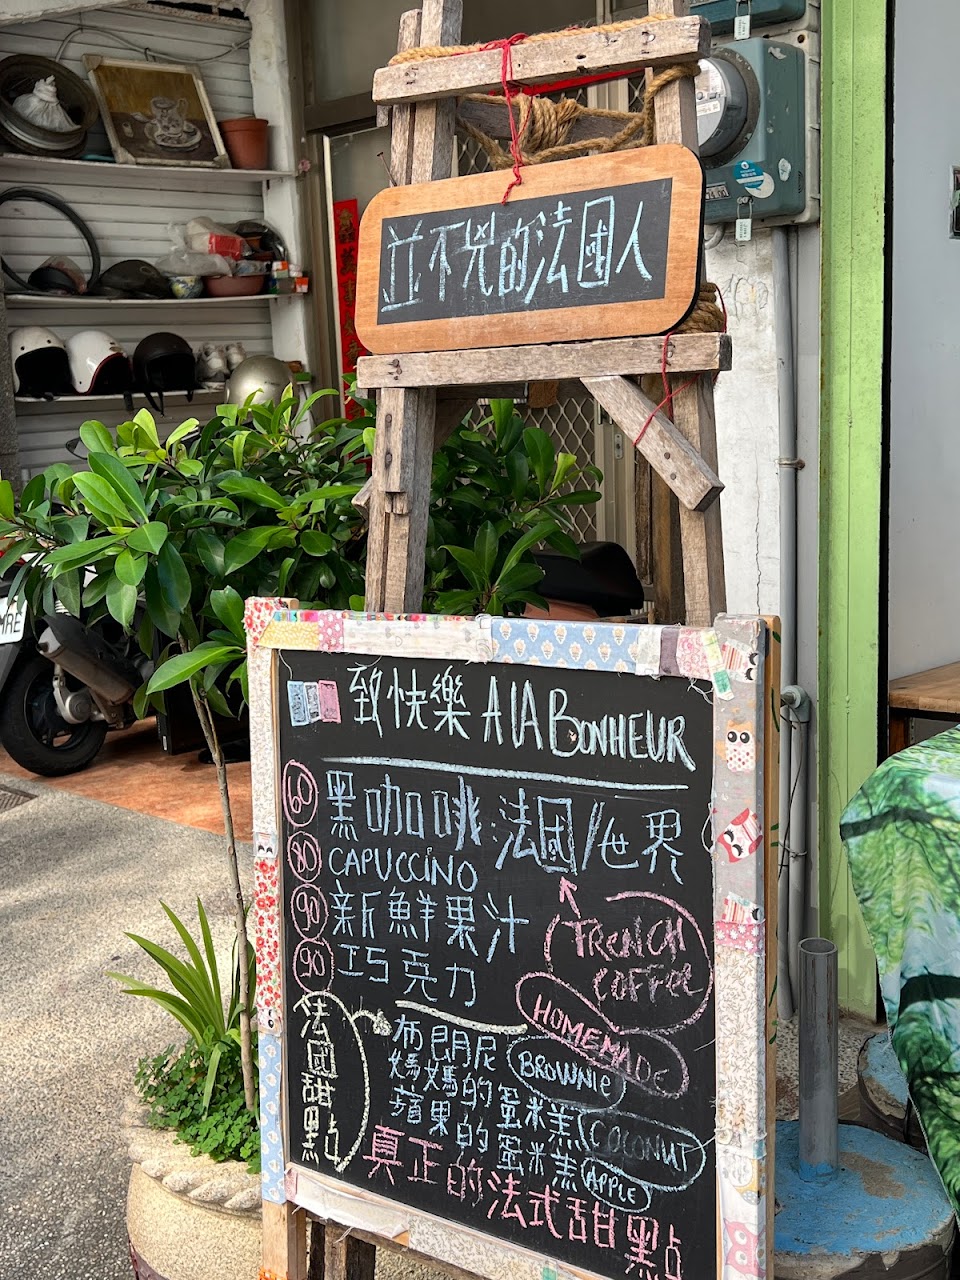 並不兇的法國人
致快樂 A lA BONHEUR
60 黑咖啡 法國/世界
80 CAPUCCiNO
90 新鮮果汁
90 巧克力
FRENCH
COFFEE
HOMEMADE
法國甜點
布朗尼 BROWNIE
媽媽的蛋糕 COCONUT
蘋果的蛋糕 APPLE
真正的法式甜點